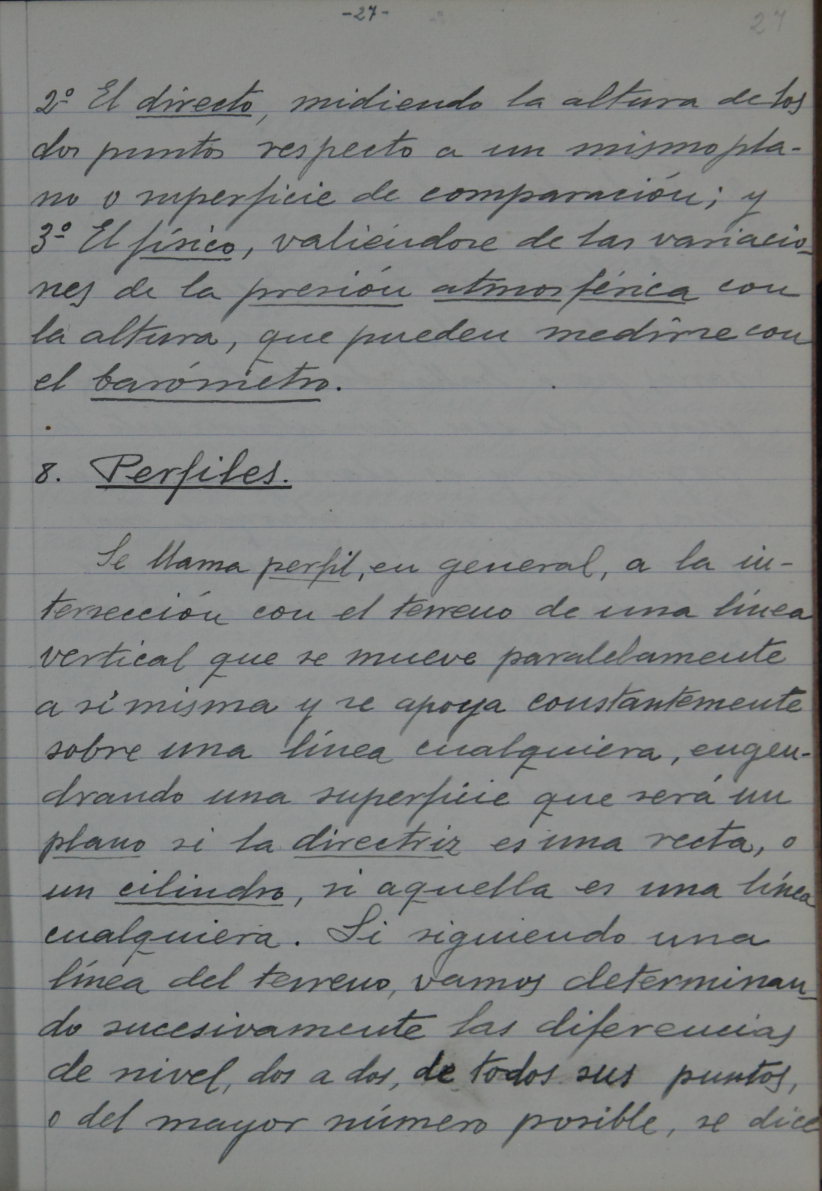 -27-
27
2º El directo, midiendo la altura de los
dos puntos respecto a un mismo pla-
no o superficie de comparación; y
3º El físico, valiéndose de las variacio-
nes de la presión atmosférica con
la altura, que pueden medirse con
el barómetro.
8. Perfiles.
Se llama perfil, en general, a la in-
tersección con el terreno de una línea
vertical que se mueve paralelamente
a sí misma y se apoya constantemente
sobre una línea cualquiera, engen-
drando una superficie que será un
plano si la directriz es una recta, o
un cilindro, si aquella es una línea
cualquiera. Si siguiendo una
línea del terreno, vamos determinan-
do sucesivamente las diferencias
de nivel, dos a dos, de todos sus puntos,
o del mayor número posible, se dice